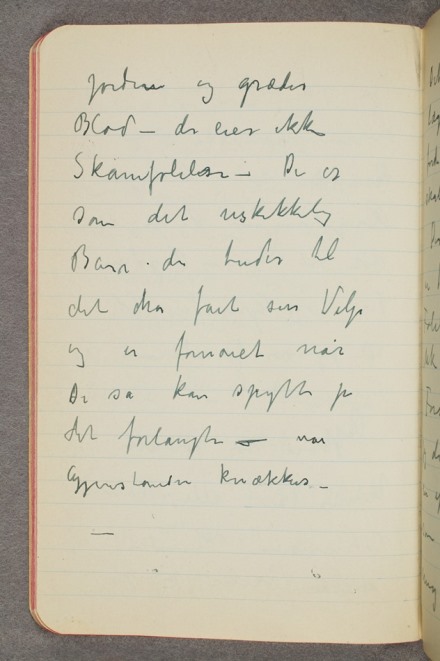 Jorden og græder
Blod — der eier ikke
Skamfølelse — De er
som det uskikkelig
Barn . der tuder til
det har faat sin Vilje
og er fornøiet når
De så kan spytte på
det forlangte — når
Gjenstanden knækkes —
—